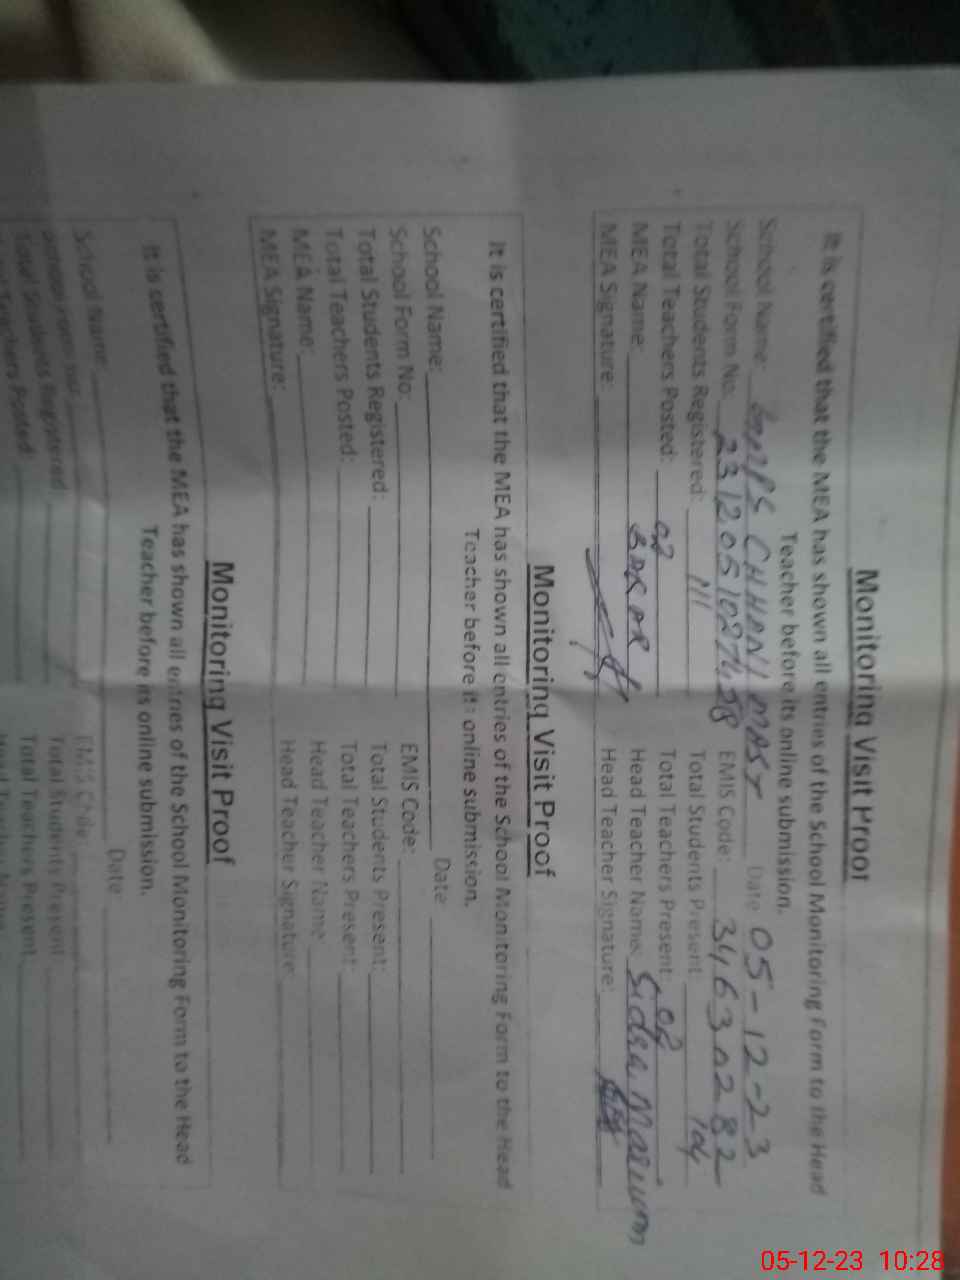 Monitoring Visit Proof
It is certified that the MEA has shown all entries of the School Monitoring Form to the Head
Teacher before its online submission.
School Name: CHHANI MAST Date 05-12-23
School Form No: EMIS Code: 34630282
Total Students Registered: 111 Total Students Present: 104
Total Teachers Posted: 02 Total Teachers Present: 02
MEA Name: Head Teacher Name: Sidra Marium
MEA Signature: Head Teacher Signature:
Monitoring Visit Proof
It is certified that the MEA has shown all entries of the School Monitoring Form to the Head
Teacher before its online submission.
School Name: Date
School Form No: EMIS Code:
Total Students Registered: Total Students Present:
Total Teachers Posted: Total Teachers Present:
MEA Name: Head Teacher Name
MEA Signature: Head Teacher Signature:
Monitoring Visit Proof
It is certified that the MEA has shown all entries of the School Monitoring Form to the Head
Teacher before its online submission.
School Name: Date
School Form No: EMIS Code
Total Students Registered Total Students Present
Teachers Posted: Total Teachers Present
05-12-23 10:28